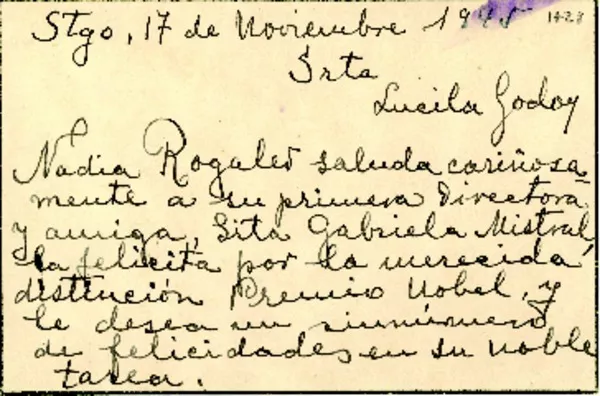 Stgo, 17 de Noviembre 1945 1428
Srta
Lucila Godoy
Nadia Rogalev saluda cariñosa
mente a su primera Directora
y amiga, Sita Gabriela Mistral,
la felicita por la merecida
distinción Premio Nobel, y
le desea un sinnúmero
de felicidades en su noble
tarea.